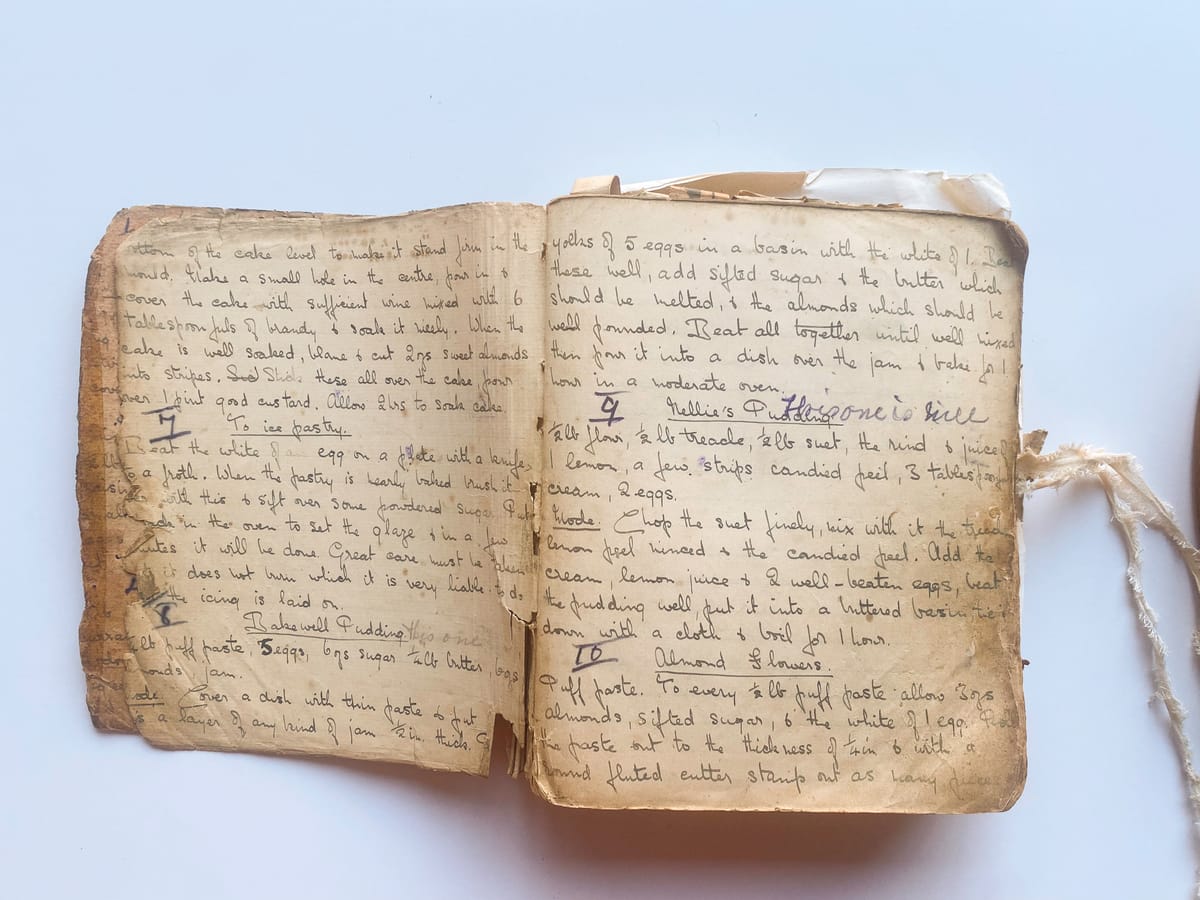 of the cake level to make it stand firm in the
mould. Make a small hole in the centre, pour in &
cover the cake with sufficient wine mixed with 6
tablespoonfuls of brandy & soak it nicely. When the
cake is well soaked, blane & cut 2ozs sweet almonds
into stripes. Stick these all over the cake pour
over 1 pint good custard. Allow 2hrs to soak cake.
7
To ice pastry.
Beat the white of an egg on a plate with a knife
to a froth. When the pastry is nearly baked brush it
with this & sift over some powdered sugar. Put
in the oven to set the glaze & in a few
it will be done. Great care must be taken
it does not burn which it is very liable to do
the icing is laid on.
8
Bakewell Pudding this one
lb puff paste, 5 eggs, 6ozs sugar ¼lb butter,
jam.
Cover a dish with thin paste & put
a layer of any kind of jam ½ in. thick.
yolks of 5 eggs in a basin with the white of 1. Beat
these well, add sifted sugar & the butter which
should be melted, & the almonds which should be
well pounded. Beat all together until well mixed
then pour it into a dish over the jam & bake for 1
hour in a moderate oven.
9
Nellie's Pudding This one is nice
½lb flour, ½lb treacle, ½lb suet, the rind & juice of
1 lemon, a few strips candied peel, 3 tablespoonfuls
cream, 2 eggs.
Mode. Chop the suet finely, mix with it the treacle
lemon peel minced & the candied peel. Add the
cream, lemon juice & 2 well-beaten eggs, beat
the pudding well, put it into a buttered basin tie it
down with a cloth & boil for 1 hour.
10
Almond Flowers.
Puff paste. To every ½lb puff paste allow 3ozs
almonds, sifted sugar, & the white of 1 egg. Roll
the paste out to the thickness of ¼in & with a
round fluted cutter stamp out as many pieces